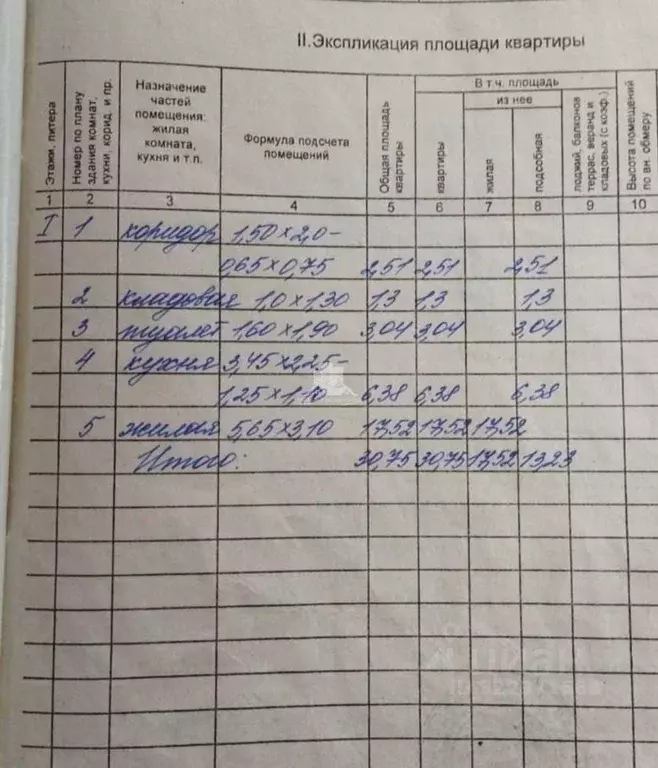 II.Экспликация площади квартиры
Этажи, литера | Номер по плану здания комнат, кухни, корид. и пр. | Назначение частей помещения: жилая комната, кухня и т.п. | Формула подсчета помещений | Общая площадь квартиры | В т.ч. площадь | квартиры | из нее | жилая | подсобная | лоджий, балконов террас, веранд и кладовых (с коэф.) | Высота помещений по вн. обмеру
1 2 3 4 5 6 7 8 9 10
I 1 коридор 1,50×2,0-
0,65×0,75 2,51 2,51 2,51
2 кладовая 1,0×1,30 1,3 1,3 1,3
3 туалет 1,60×1,90 3,04 3,04 3,04
4 кухня 3,45×2,25-
1,25×1,10 6,38 6,38 6,38
5 жилая 5,65×3,10 17,52 17,52 17,52
Итого: 30,75 30,75 17,52 13,23